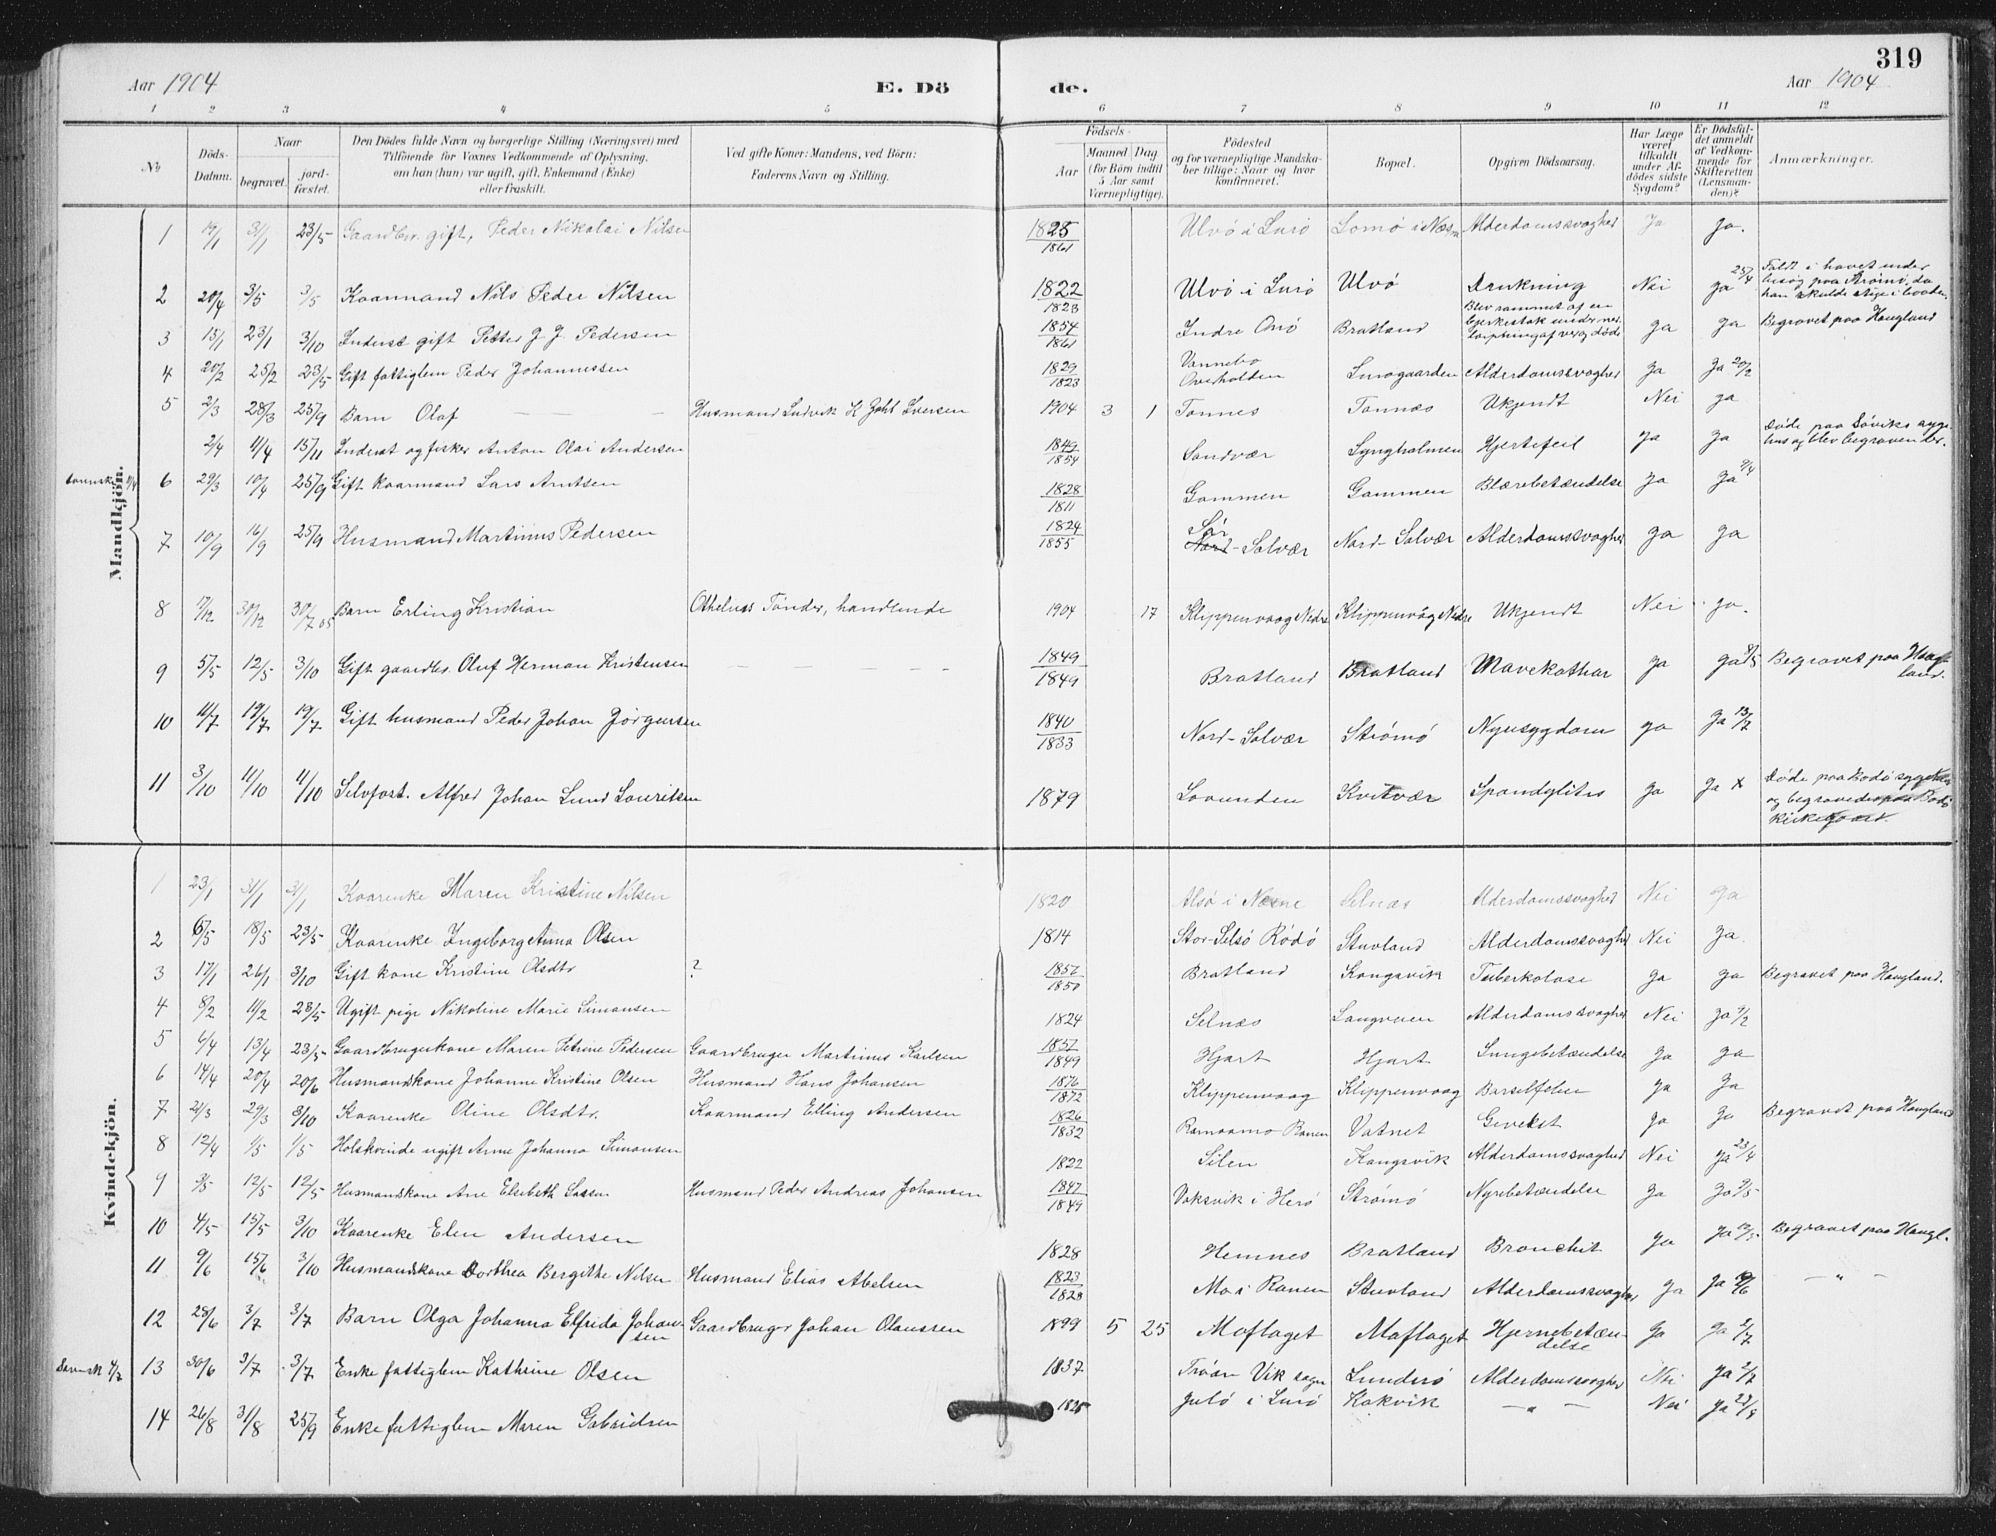 319
Aar 1904 E. Dö de. Aar 1904
1 2 3 4 5 6 7 8 9 10 11 12
No
Döds-Datum.
Naar
begravet.
jord-fæstet.
Den Dödes fulde Navn og borgerlige Stilling (Næringsvei) med
Tilföiende for Voxnes Vedkommende af Oplysning,
om han (hun) var ugift, gift, Enkemand (Enke)
eller fraskilt.
Ved gifte Koner: Mandens, ved Börn:
Faderens Navn og Stilling.
Födsels-
Aar
Maaned Dag
(for Börn indtil
5 Aar samt
Værnepligtige).
Födested
og for værnepligtige Mandska-
ber tillige: Naar og hvor
konfirmeret.
Bopæl.
Opgiven Dödsaarsag.
Har Læge
været
tilkaldt
under Af-
dödes sidste
Sygdom?
Er Dödsfal-
det anmeldt
af Vedkom-
mende for
Skifteretten
(Lensman-
den)?
Anmærkninger.
Mandkjön.
1 19/1 31/1 23/5 Gaardbr. gift, Peder Nikolai Nilsen 1825 1861 Ulvö i Lurö Lomö i Næsne Alderdomssvaghed Ja Ja.
2 20/4 3/5 3/5 Kaarmand Nils Peder Nilsen 1822 1823 Ulvö i Lurö Ulvö Drukning Nei Ja 25/4 Faldt i havet under besög paa Strömö, da han skulde stige i baaden
3 15/1 23/1 3/10 Inderst gift Petter J. J. Pedersen 1854 1861 Indre Onö Bratland Blev rammet af en Bjerkestok under ned af ved, döde Ja Ja Begravet paa Haugland
4 20/2 25/2 23/5 Gift fattiglem Peder Johannessen 1829 1823 Vannebo Overholden Lurogaarden Alderdomssvaghed Ja Ja 20/2
5 2/3 28/3 25/9 Barn Olaf Husmand Ludvik K Johl Iversen 1904 3 1 Tonnes Tonnæs Ukjendt Nei Ja
2/4 11/4 15/11 Inderst og fisker Anton Olai Andersen 1849 1854 Sandvær Lyngholmen Hjertefeil Ja Ja Döde paa Löviks syge-hus og blev begraven der.
6 29/3 10/4 25/9 Gift kaarmand Lars Arntsen 1828 1811 Gammen Gammen Blærebetændelse Ja Ja 9/4
7 10/9 16/9 25/9 Husmand Martinus Pedersen 1824 1855 Sör Nord-Solvær Nord-Solvær Alderdomssvaghed Ja Ja
8 17/12 30/12 30/7 05 Barn Erling Kristian Othelius Tönder, handlende 1904 17 Klippenvaag Nedre Klippenvåg Nedre Ukjendt Nei Ja.
9 5/5 12/5 3/10 Gift gaardbr. Oluf Herman Kristensen 1849 1849 Bratland Bratland Mavekathar Ja Ja 9/5 Begravet paa Haug-land.
10 11/7 19/7 19/7 Gift husmand Peder Johan Jörgensen 1840 1833 Nord-Solvær Strömö Nyresygdom Ja Ja 13/7
11 3/10 11/10 11/10 Selvfost. Alfred Johan Lund Lauritsen 1879 Lovunden Kvitvær Spondylitis Ja Ja x Döde paa Bodö sygehus og begravedes paa Bodö kirkegaard.
Kvindekjön.
1 23/1 31/1 31/1 Kaarenke Maren Kristine Nilsen 1820 Alsö i Næsne Selnæs Alderdomssvaghed Nei Ja
2 6/5 18/5 23/5 Kaarenke Ingeborg Anna Olsen 1814 Stor-Selsö Rödö Stuvland Alderdomssvaghed Nei Ja.
3 17/1 26/1 3/10 Gift kone Kristine Olsdtr ? 1857 1850 Bratland Kongsvik Tuberkolose Ja Ja Begravet paa Haugland.
4 8/2 11/2 23/5 Ugift pige Nikoline Marie Simonsen 1824 Selnæs Langveien Alderdomssvaghed Nei Ja 9/2
5 6/4 13/4 23/5 Gaardbrugerkone Maren Petrine Pedersen Gaardbruger Martinus Karlsen 1857 1849 Hjart Hjart Lungebetændelse Ja Ja
6 14/4 20/4 20/6 Husmandskone Johanne Kristine Olsen Husmand Hans Johansen 1876 1872 Klippenvaag Klippenvaag Barselfeber Ja Ja
7 21/3 29/3 3/10 Kaarenke Oline Olsdtr. Kaarmand Elling Andersen 1826 1832 Ranen Vatnet Gevekst Ja Ja Begravet paa Haugland
8 12/4 1/5 1/5 Holskvinde ugift Anne Johanna Simonsen 1822 Silen Kongsvik Alderdomssvaghed Nei Ja 23/4
9 3/5 12/5 12/5 Husmandskone Ane Elisbeth Lassen Husmand Peder Andreas Johansen 1847 1849 Voksvik i Herö Strömö Nyrebetændelse Ja Ja 9/5
10 4/5 15/5 3/10 Kaarenke Elen Andersen 1828 Hemnes Bratland Bronchit Ja Ja Begravet paa Haugl.
11 9/6 15/6 3/10 Husmandskone Dorthea Bergitte Nilsen Husmand Elias Abelsen 1823 1828 Mo i Ranen Stuvland Alderdomssvaghed Ja Ja – " –
12 28/6 3/7 3/7 Barn Olga Johanna Elfrida Johan-sen Gaardbruger Johan Olaussen 1899 5 25 Moflaget Moflaget Hjernebetæn-delse Ja Ja 2/7
13 30/6 3/7 3/7 Enke fattiglem Kathrine Olsen 1837 Vik sogn Lunderö Alderdomssvaghed Nei Ja 2/7
14 26/8 31/8 25/9 Enke fattiglem Maren Gabrielsen 1825 i Lurö Kokvik – " – Nei Ja